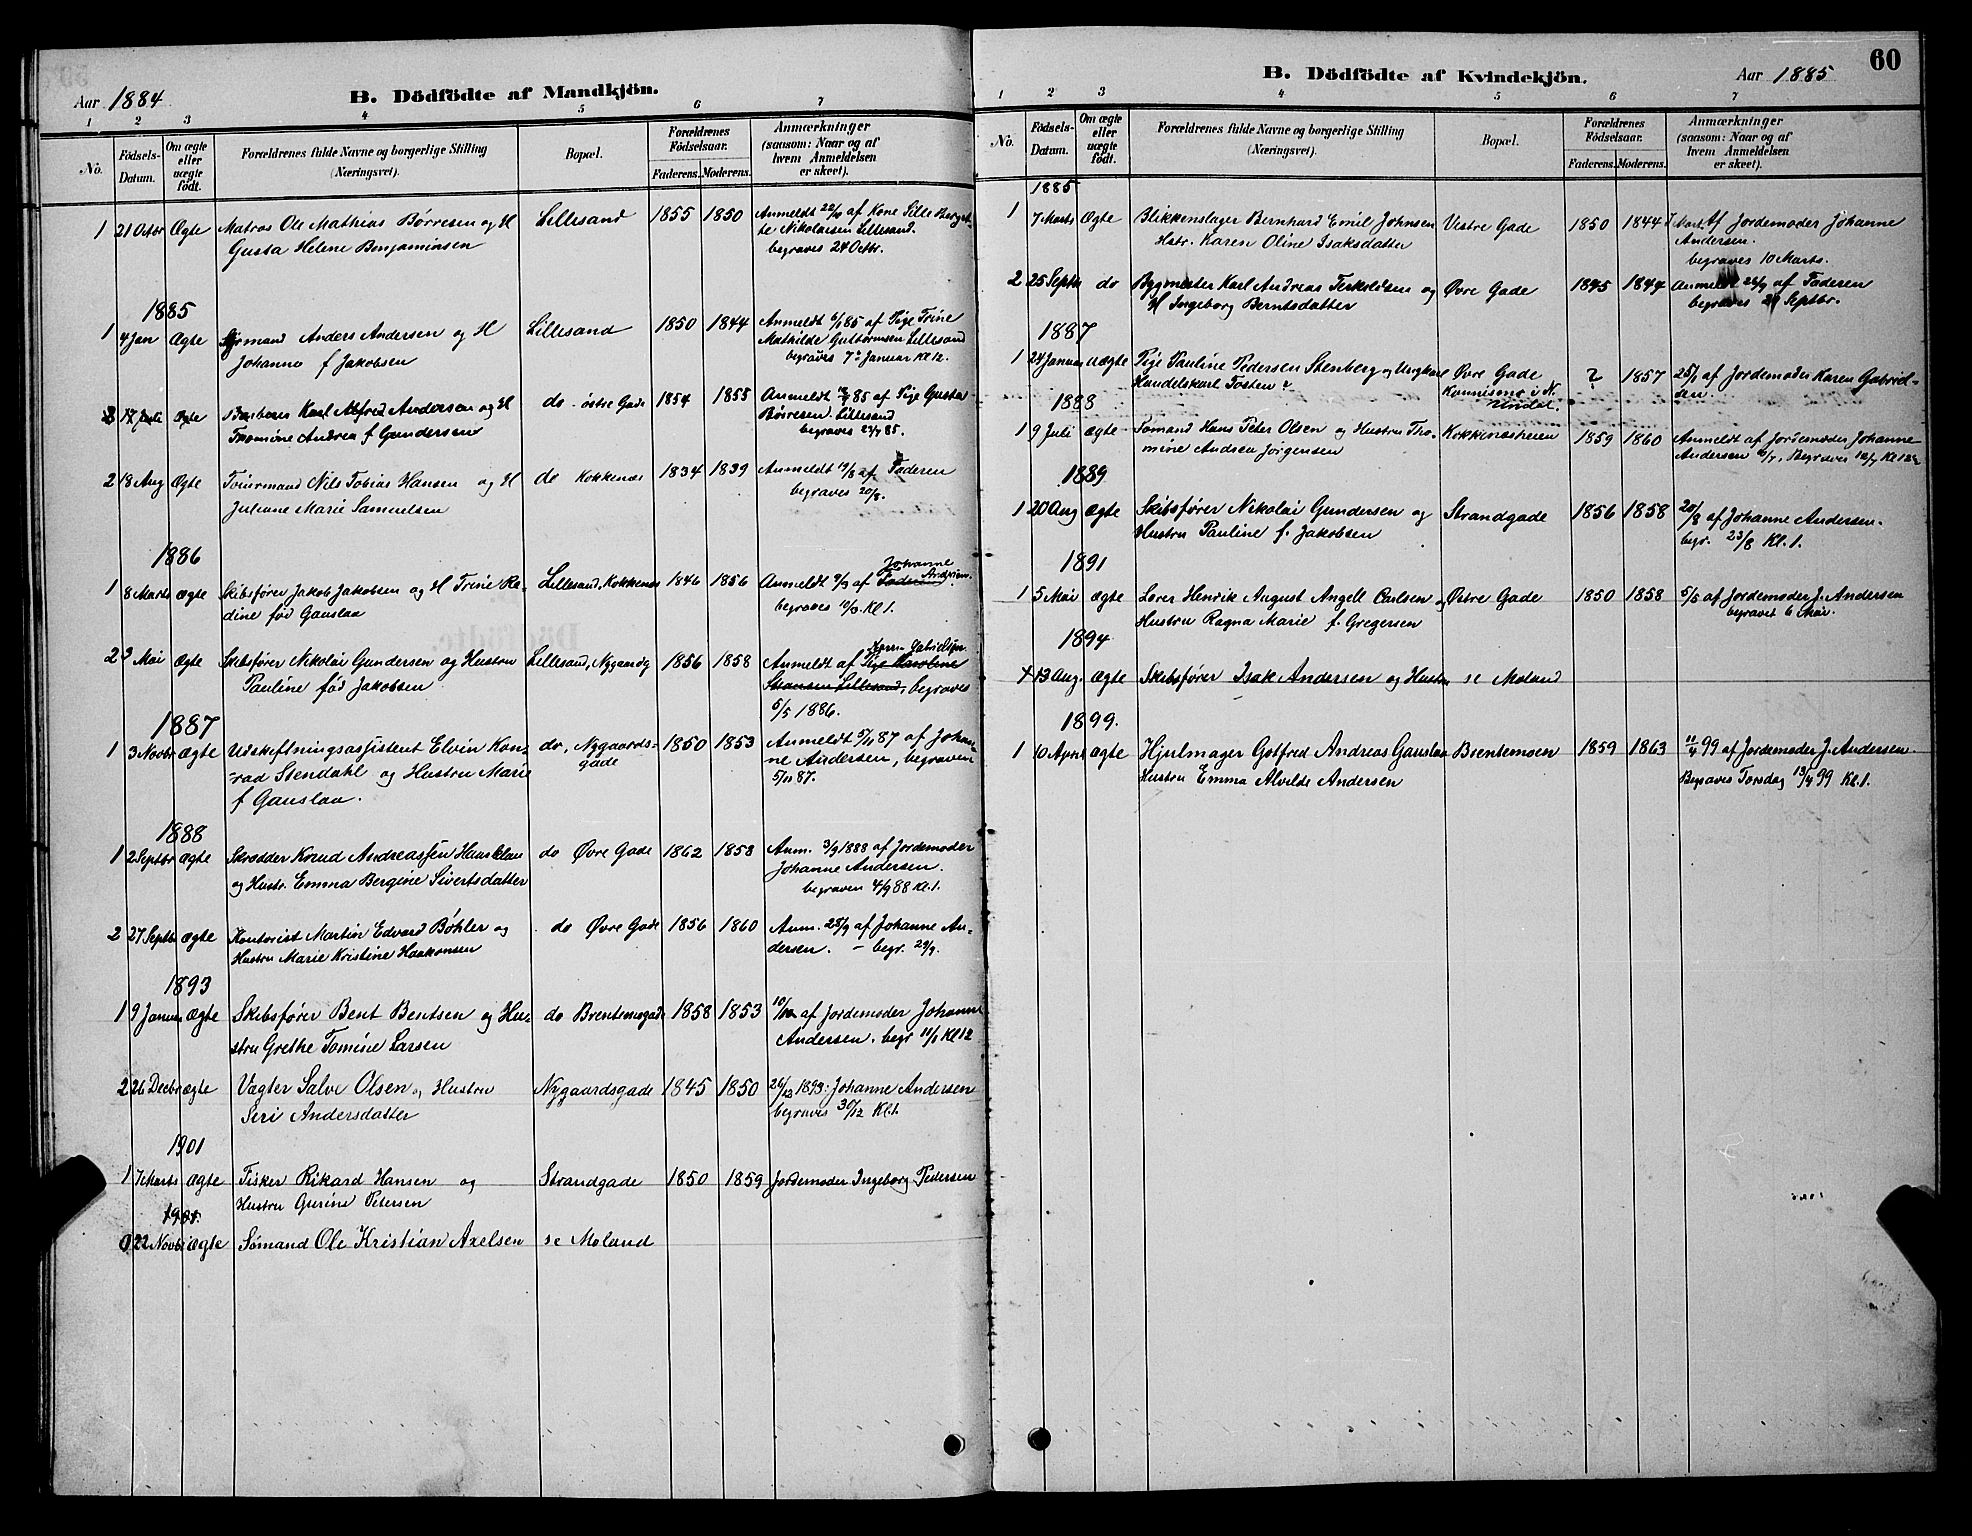 Aar 1884
B. Dödfödte af Mandkjön.
1 2 3 4 5 6 7
No.
Födsels-
Datum.
Om ægte
eller
uægte
født.
Forældrenes fulde Navne og borgerlige Stilling
(Næringsvei).
Bopæl.
Forældrenes
Födselsaar.
Faderens. Moderens.
Anmærkninger
(saasom: Naar og af
hvem Anmeldelsen
er skeet).
1 21 Octbr Ægte Matros Ole Mathias Børresen og H Lillesand 1855 1850 Anmeldt 22/10 af Kone Sille Berget-
Gusta Helene Benjaminsen te Nikolaisen Lillesand.
begraves 24 Octbr.
1885
1 4 Jan Ægte Anders Andersen og H Lillesand 1850 1844 Anmeldt 6/1 85 af Pige Trine
Johanne f Jakobsen Mathilde Guttormsen Lillesand
begraves 7de Januar Kl 12.
Ægte Barberer Karl Alfred Andersen og H do - östre Gade 1854 1855 Anmeldt 85 af Pige Gusta
Tromine Andrea f Gundersen Børresen Lillesand
begraves 85.
2 18 Aug Ægte Nils Tobias Hansen og H do Kokkenæs 1834 1839 Anmeldt 19/8 af Faderen
Juliane Marie Samuelsen begraves 20/8.
1886
1 8 Marts ægte Skibsfører Jakob Jakobsen og H Trine Ra- Lillesand, Kokkenæs 1846 1856 Anmeldt 9/3 af Johanne
dine fød Gauslaa begraves Kl 1.
2 3 Mai Ægte Skibsfører Nikolai Gundersen og Hustru Lillesand, Nygaardg 1856 1858 Anmeldt af Pige Karoline
Pauline fød Jakobsen Lillesand, begraves
5/5 1886.
1887
1 3 Novbr ægte Udskiftningsassistent Elvin Kon- do, Nygaards- 1850 1853 Anmeldt 5/11 87 af Johan-
rad Stendahl og Hustru Marie gade ne Andersen, begraven
f Gauslaa. 5/11 87.
1888
1 2 Septbr ægte Skrædder Knud Andreassen do Øvre Gade 1862 1858 Anm. 3/9 1888 af Jordemoder
og Hustr. Emma Bergine Sivertsdatter Johanne Andersen.
begraven 4/9 88 Kl. 1.
2 27 Septbr ægte Kontorist Martin Edvard Böhler og do Øvre Gade 1856 1860 Anm. 28/9 af Johanne An-
Hustru Marie Kristine Haakonsen dersen. – begr. 29/9.
1893
1 9 Januar ægte Skibsfører Bent Bentsen og Hu- do Brentemogade 1858 1853 af Jordemoder Johanne
stru Grethe Tomine Larsen Andersen, begr 11/1 Kl 12
2 26 Decbr ægte Vægter Salve Olsen og Hustru Nygaardsgade 1845 1850 26/12 1893: Johanne Andersen
Seri Andersdatter begraves 30/12 Kl. 1.
1901
1 7 Marts ægte Fisker Rikard Hansen og Strandgade 1850 1859 Jordemoder Ingeborg Pedersen
Hustru Gurine Petersen
1901.
0 22 Novbr ægte Sømand Ole Kristian Axelsen se Moland
B. Dödfödte af Kvindekjön.
Aar 1885
60
1 2 3 4 5 6 7
No.
Födsels-
Datum.
Om ægte
eller
uægte
födt.
Forældrenes fulde Navne og borgerlige Stilling
(Næringsvei).
Bopæl.
Forældrenes
Födselsaar.
Faderens. Moderens.
Anmærkninger
(saasom: Naar og af
hvem Anmeldelsen
er skeet).
1885
1 7 Marts Ægte Blikkenslager Bernhard Emil Johnsen Vestre Gade 1850 1844 7 Marts Af Jordemoder Johanne
Hstr. Karen Oline Isaksdatter Andersen.
begraves 10 Marts.
2 25 Septbr do Bygmester Karl Andreas Terkoldsen og Øvre Gade 1845 1844 Anmeldt 26/9 af Faderen
H Ingeborg Berntsdatter begraves Septbr.
1887
1 24 Januar uægte Pige Pauline Pedersen Stenberg og Ungkarl Øvre Gade ? 1857 25/1 af Jordemoder Karen Gabriel-
Handelskarl Tosten ? Konnismo i N. sen.
Undal.
1888
1 9 Juli ægte Sømand Hans Peter Olsen og Hustru Tho- Kokkinæsheien 1859 1860 Anmeldt af Jordemoder Johanne
mine Andrea Jörgensen Andersen Begraves 12/7 Kl 12
1889
1 20 Aug ægte Skibsfører Nikolai Gundersen og Strandgade 1856 1858 20/8 af Johanne Andersen.
Hustru Pauline f. Jakobsen begr. 23/8 Kl. 1.
1891
1 5 Mai ægte Lærer Henrik August Angell Carlsen og Østre Gade 1850 1858 5/5 af Jordemoder J. Andersen
Hustru Ragna Marie f. Gregersen begravet 6 Mai.
1894
13 Aug. ægte Skibsfører Isak Andersen og Hustru se Moland
1899.
1 10 April ægte Hjulmager Gotfred Andreas Gauslaa Brentemoen 1859 1863 11/4 99 af Jordemoder J. Andersen
Hustru Emma Alvilde Andersen Begraves Torsdag 13/4 99 Kl. 1.